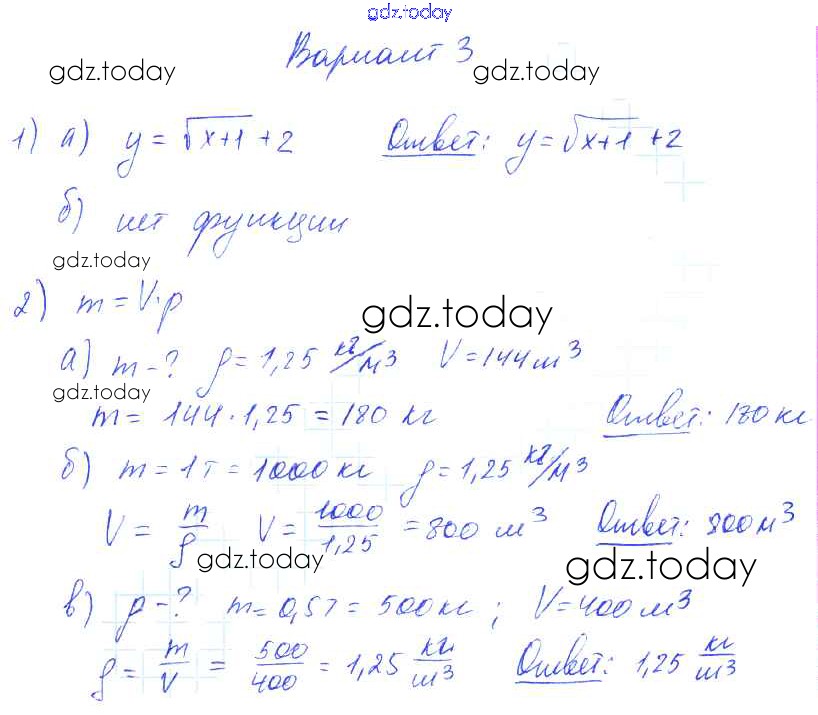 gdz.today
Вариант 3
gdz.today gdz.today
1) а) y = √x+1 + 2 Ответ: y = √x+1 + 2
б) нет функции
gdz.today
2) m = V·ρ
gdz.today
а) m - ? ρ = 1,25 кг/м³ V = 144 м³
gdz.today
m = 144 · 1,25 = 180 кг Ответ: 180 кг
б) m = 1т = 1000 кг ρ = 1,25 кг/м³
V = m/ρ V = 1000/1,25 = 800 м³ Ответ: 800 м³
gdz.today gdz.today
в) ρ - ? m = 0,5т = 500 кг ; V = 400 м³
ρ = m/V = 500/400 = 1,25 кг/м³ Ответ: 1,25 кг/м³